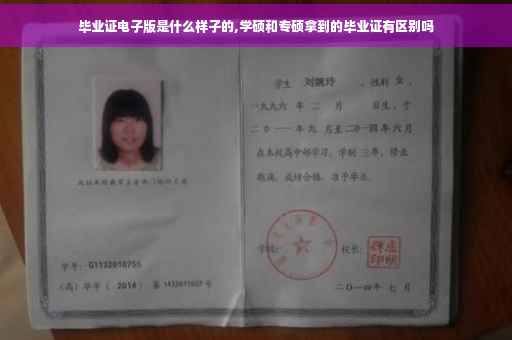 毕业证电子版是什么样子的,学硕和专硕拿到的毕业证有区别吗
学生 刘婉玲 ，性别 女 ，
一九九六 年 二 月 日生，于
二〇一一 年 九 月至 二〇一四 年 六 月
在本校高中部学习，学制 三 年，修业
期满，成绩合格，准予毕业。
学号： G1132010755
（高）毕字（ 2014 ）第 1432011027 号
学校：
校长：
二〇一四 年 七 月